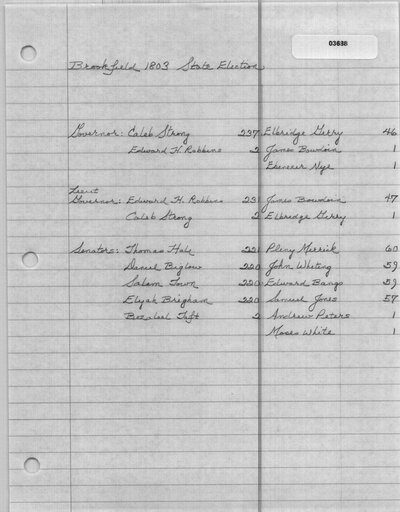 03688
Brookfield 1803 State Election
Governor: Caleb Strong 237 Elbridge Gerry 46
Edward H. Robbins 2 James Bowdoin 1
Ebenezer Nye 1
Lieut
Governor: Edward H. Robbins 231 James Bowdoin 47
Caleb Strong 2 Elbridge Gerry 1
Senators: Thomas Hale 221 Pliny Merrick 60
Daniel Biglow 220 John Whiting 59
Salem Town 220 Edward Bangs 59
Elijah Brigham 220 Samuel Jones 57
Bezaleel Taft 2 Andrew Peters 1
Moses White 1